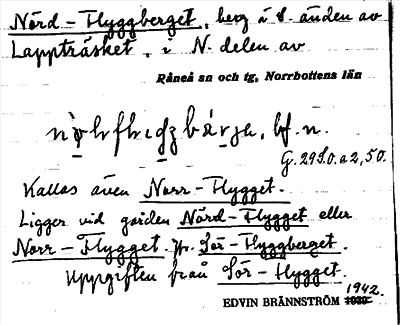 Nörd-Flyggberget, berg i S. änden av
Lappträsket, i N. delen av
Råneå sn och tg, Norrbottens län
bf. n.
G. 29 S.O. a 2, 50.
Kallas även Norr-Flygget.
Ligger vid gården Nörd-Flygget eller
Norr-Flygget. Jfr. Sör-Flyggberget.
Uppgiften från Sör-Flygget.
1942.
EDVIN BRÄNNSTRÖM 1939